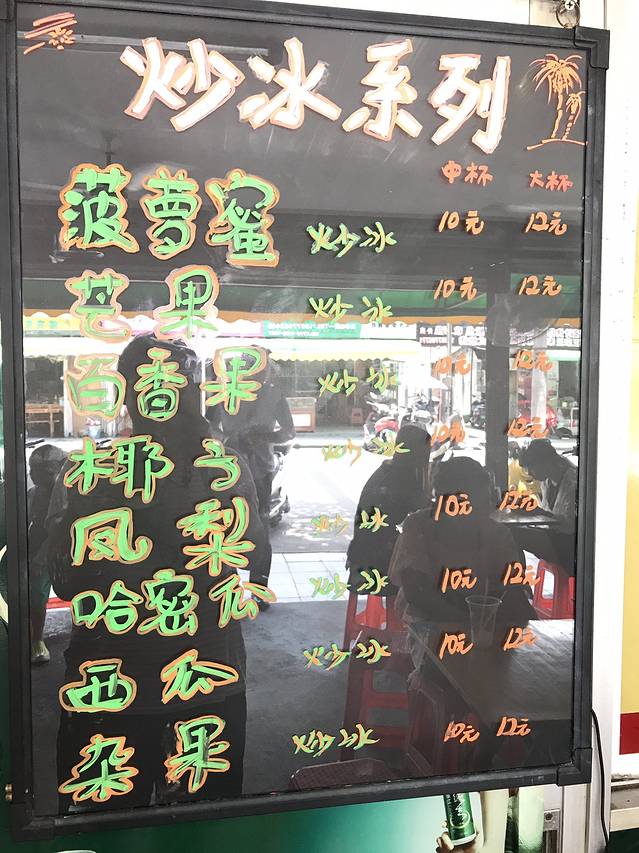 炒冰系列
中杯 大杯
菠萝蜜 炒冰 10元 12元
芒果 炒冰 10元 12元
百香果 炒冰 10元 12元
椰子 炒冰 10元 12元
凤梨 炒冰 10元 12元
哈密瓜 炒冰 10元 12元
西瓜 炒冰 10元 12元
杂果 炒冰 10元 12元